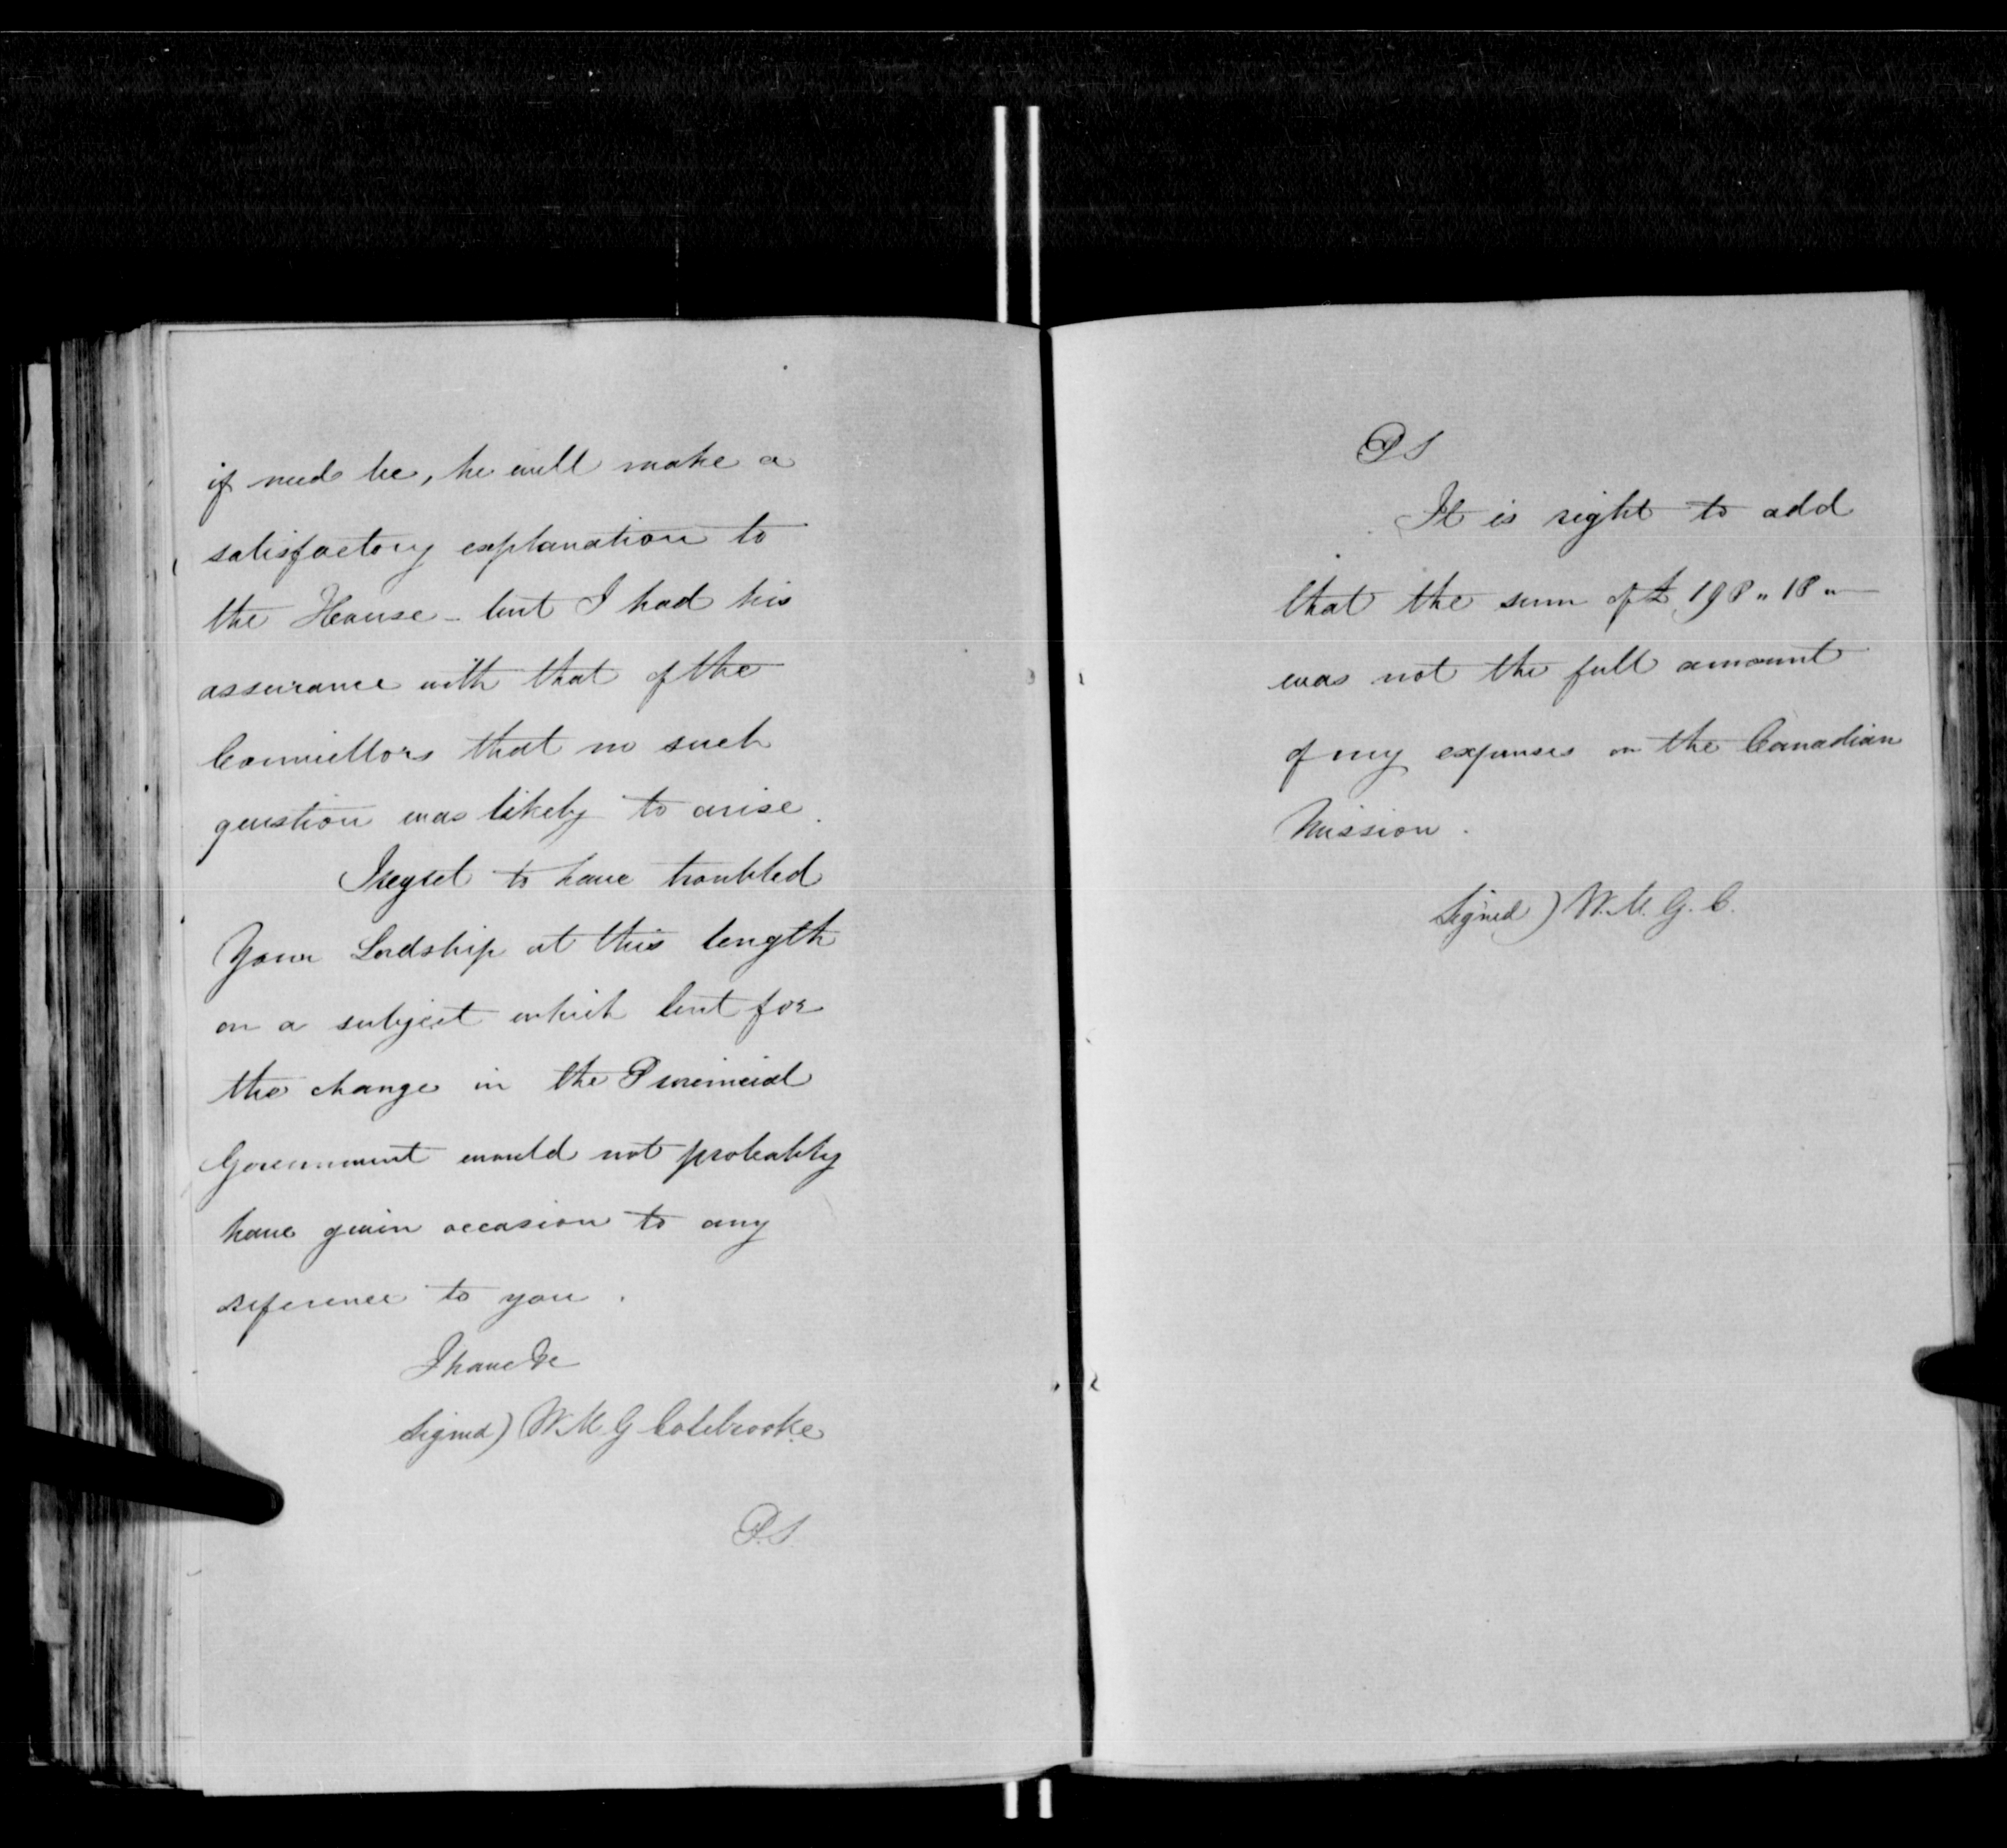 if need be, he will make a
satisfactory explanation to
the House - but I had his
assurance with that of the
Councillors that no such
question was likely to arise.
I regret to have troubled
Your Lordship at this length
on a subject which but for
the change in the Provincial
Government would not probably
have given occasion to any
reference to you.
I have &c
Signed) W. M. G Colebrooke
P.S
PS
It is right to add
that the sum of £198"18"—
was not the full amount
of my expenses on the Canadian
Mission.
Signed) W. M. G. C.